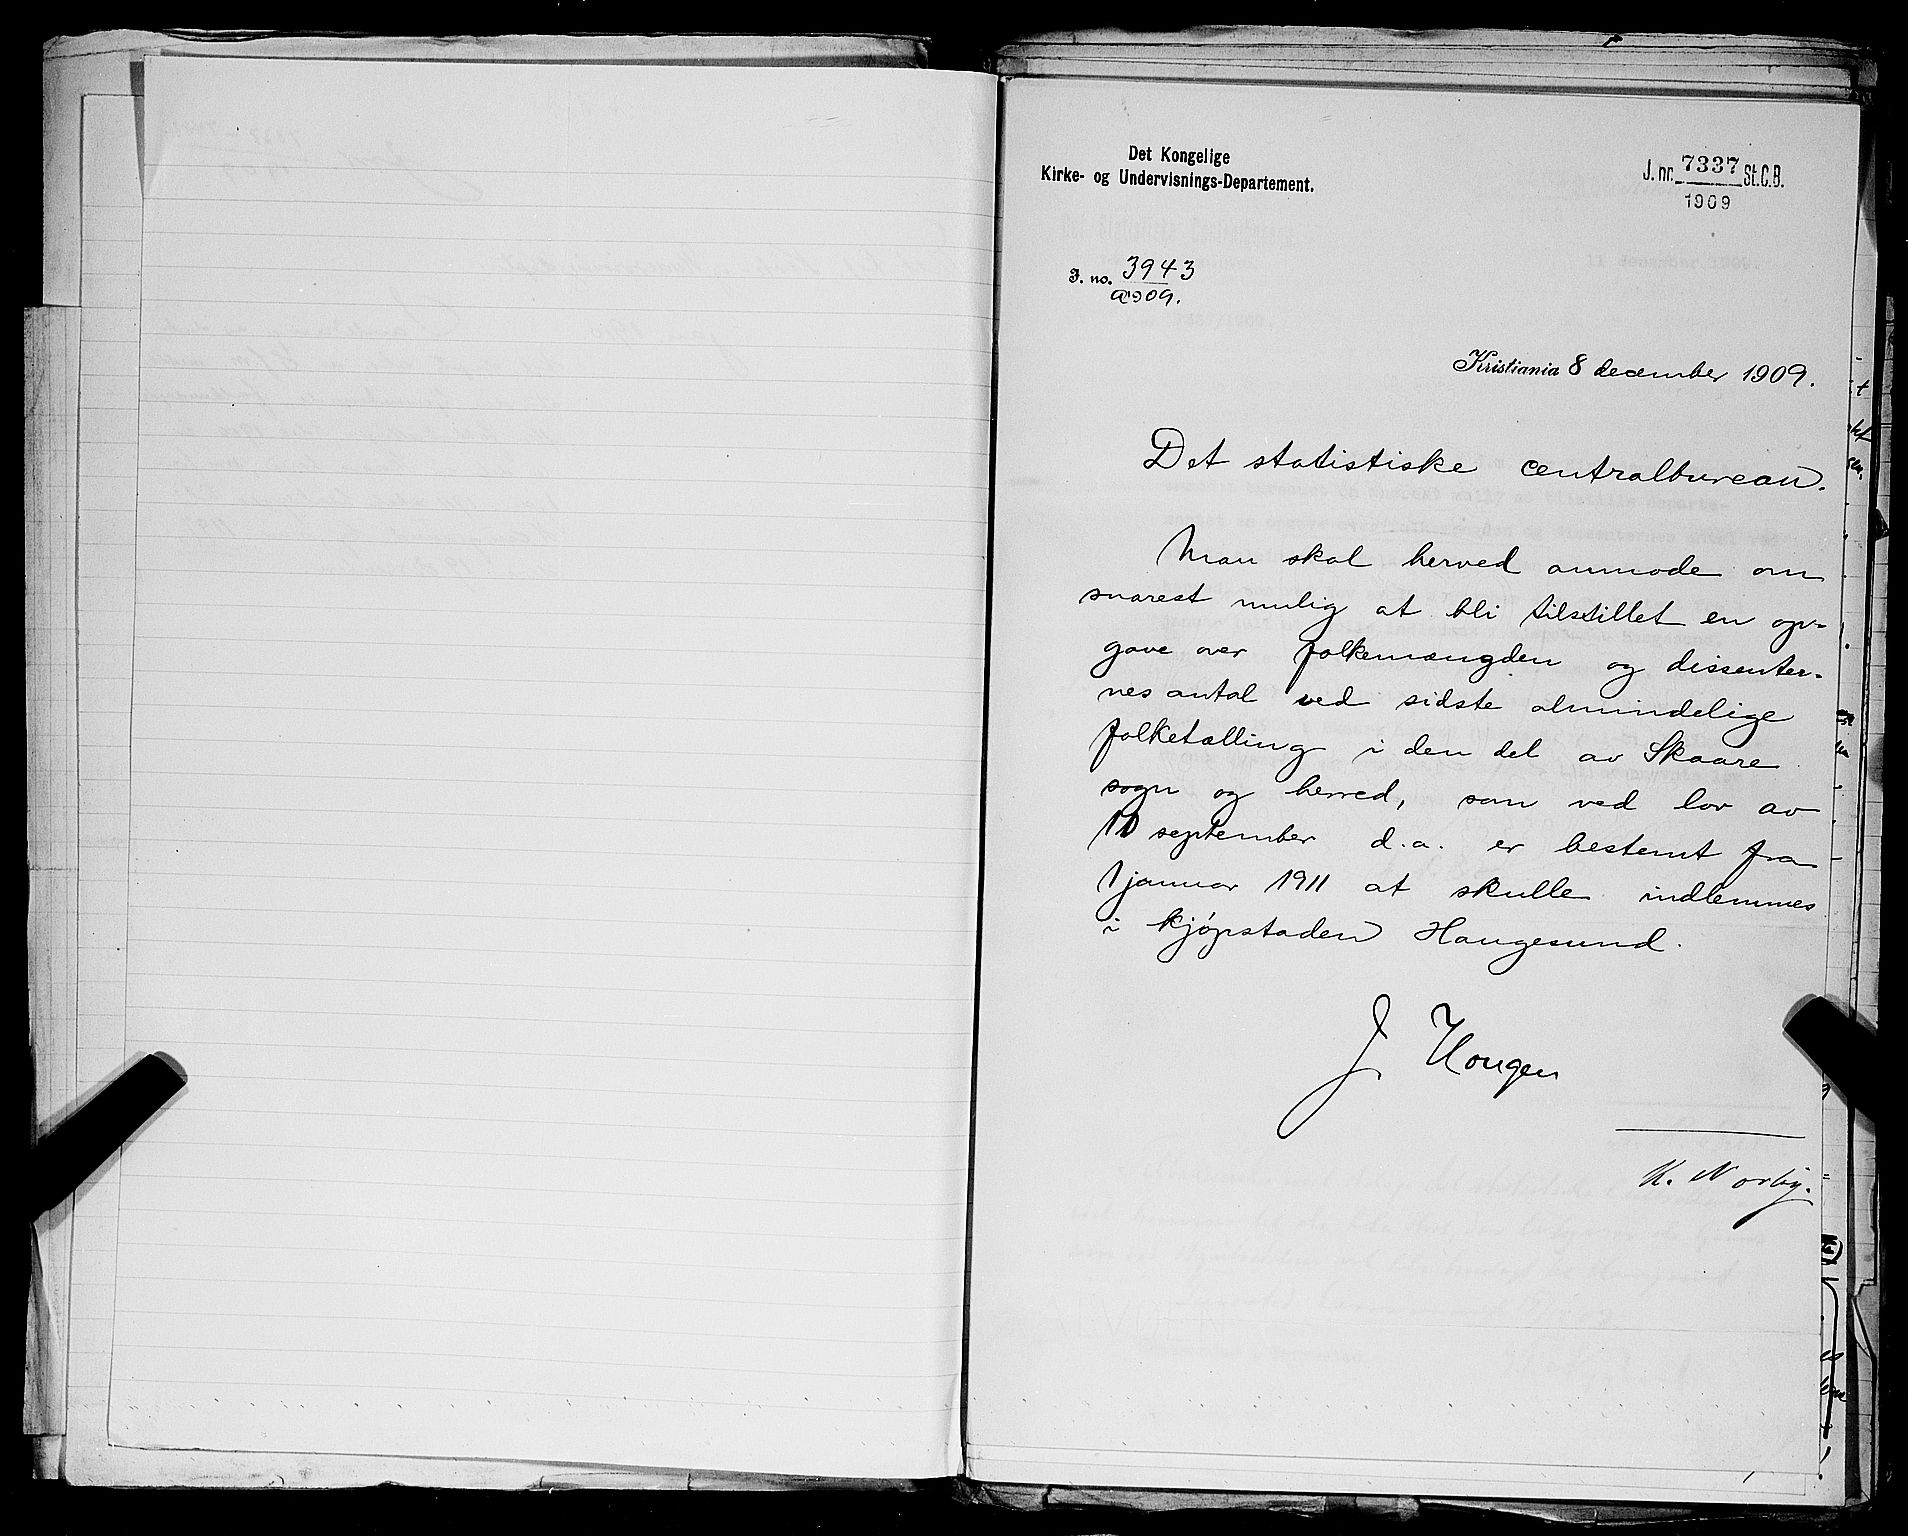 Det Kongelige
Kirke- og Undervisnings-Departement.
J. nr. 7337 St.C.B.
1909
J. no. 3943
a 1909.
Kristiania 8 december 1909.
Det statistiske centralbureau.
Man skal herved anmode om
snarest mulig at bli tilstillet en op-
gave over folkemængden og dissenter-
nes antal ved sidste almindelige
folketælling i den del av Skaare
sogn og herred, som ved lov av
10 september d.a. er bestemt fra
1 januar 1911 at skulle indlemmes
i kjøpstaden Haugesund.
J Hougen
K. Norby.